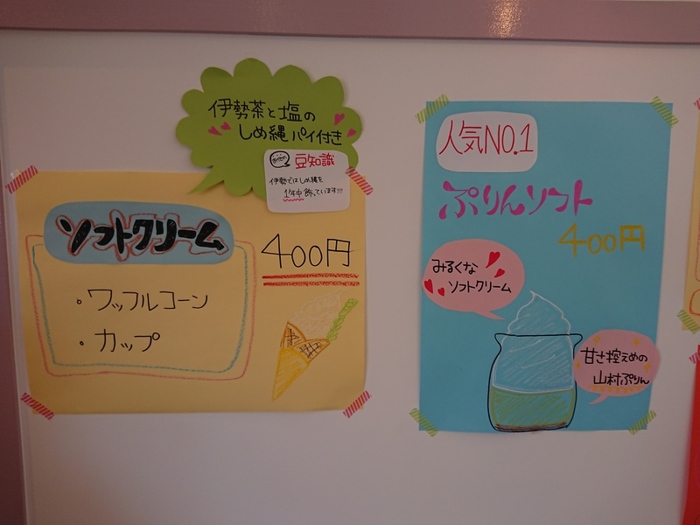 伊勢茶と塩の
しめ縄パイ付き
豆知識
伊勢ではしめ縄を
1年中飾っています!!!
ソフトクリーム
400円
・ワッフルコーン
・カップ
人気NO.1
ぷりんソフト
400円
みるくな
ソフトクリーム
甘さ控えめの
山村ぷりん